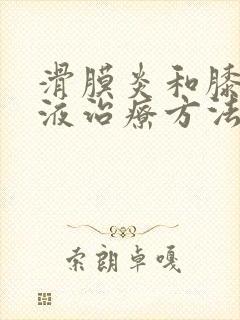 滑膜炎和膝
液治疗方法
索朗卓嘎